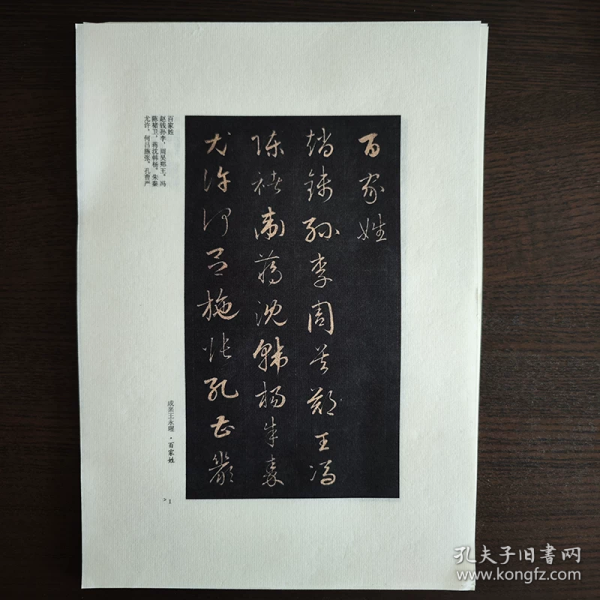 百家姓
趙錢孫李周吳鄭王馮
陳褚衛蔣沈韓楊朱秦
尤許何呂施張孔曹嚴
百家姓
赵钱孙李，周吴郑王。冯
陈褚卫，蒋沈韩杨。朱秦
尤许，何吕施张。孔曹严
成亲王永瑆·百家姓
1
孔夫子旧书网
www.kongfz.com